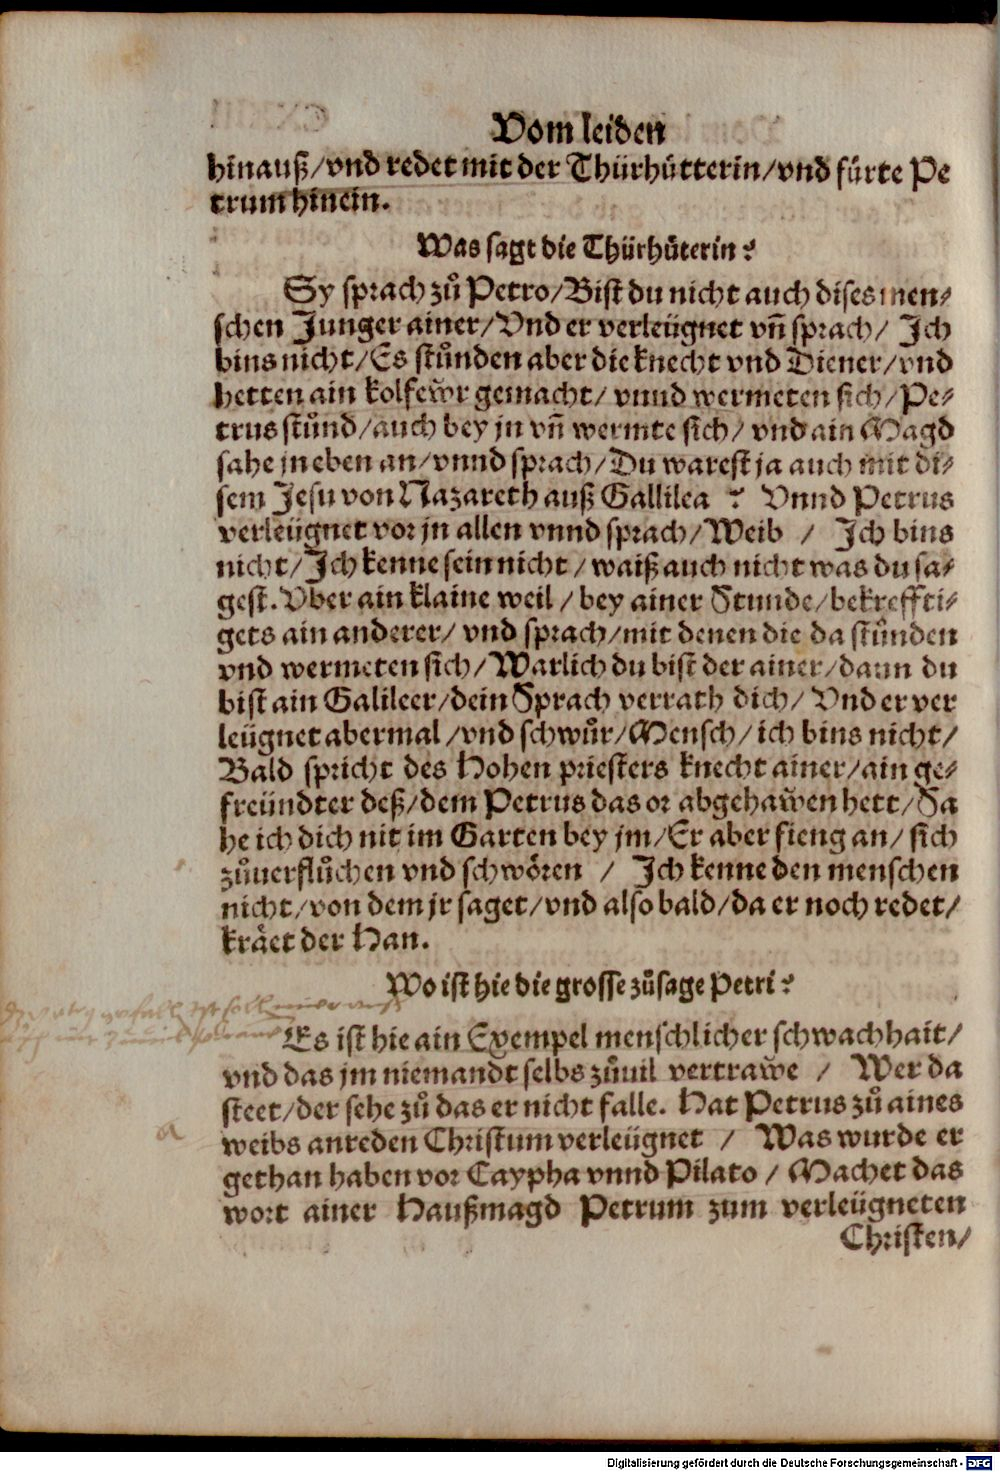 Vom leiden
hinauß/vnd redet mit der Thürhütterin/vnd fürte Pe
trum hinein.
Was sagt die Thürhüterin?
Sy sprach zů Petro/Bist du nicht auch dises men⸗
schen Junger ainer/Vnd er verleügnet vñ sprach/ Ich
bins nicht/Es stůnden aber die knecht vnd Diener/vnd
hetten ain kolfew̌r gemacht/ vnnd wermeten sich/Pe⸗
trus stůnd/auch bey jn vñ wermte sich/ vnd ain Magd
sahe jn eben an/vnnd sprach/Du warest ja auch mit di⸗
sem Jesu von Nazareth auß Gallilea ? Vnnd Petrus
verleügnet vor jn allen vnnd sprach/Weib / Ich bins
nicht/Ich kenne sein nicht/waiß auch nicht was du sa⸗
gest.Vber ain klaine weil/bey ainer Stunde/bekreffti⸗
gets ain anderer/ vnd sprach/mit denen die da stůnden
vnd wermeten sich/Warlich du bist der ainer/dann du
bist ain Galileer/dein Sprach verrath dich/ Vnd er ver
leügnet abermal/vnd schwůr/Mensch/ich bins nicht/
Bald spricht des Hohen priesters knecht ainer/ain ge⸗
freündter deß/dem Petrus das or abgehaw̌en hett/Sa
he ich dich nit im Garten bey jm/Er aber fieng an/ sich
zůuerflůchen vnd schwören / Ich kenne den menschen
nicht/von dem jr saget/vnd also bald/da er noch redet/
kräet der Han.
Wo ist hie die grosse zůsage Petri?
Es ist hie ain Exempel menschlicher schwachhait/
vnd das jm niemandt selbs zůuil vertraw̌e / Wer da
steet/der sehe zů das er nicht falle. Hat Petrus zů aines
weibs anreden Christum verleügnet / Was wurde er
gethan haben vor Caypha vnnd Pilato / Machet das
wort ainer Haußmagd Petrum zum verleügneten
Christen/
Digitalisierung gefördert durch die Deutsche Forschungsgemeinschaft - DFG